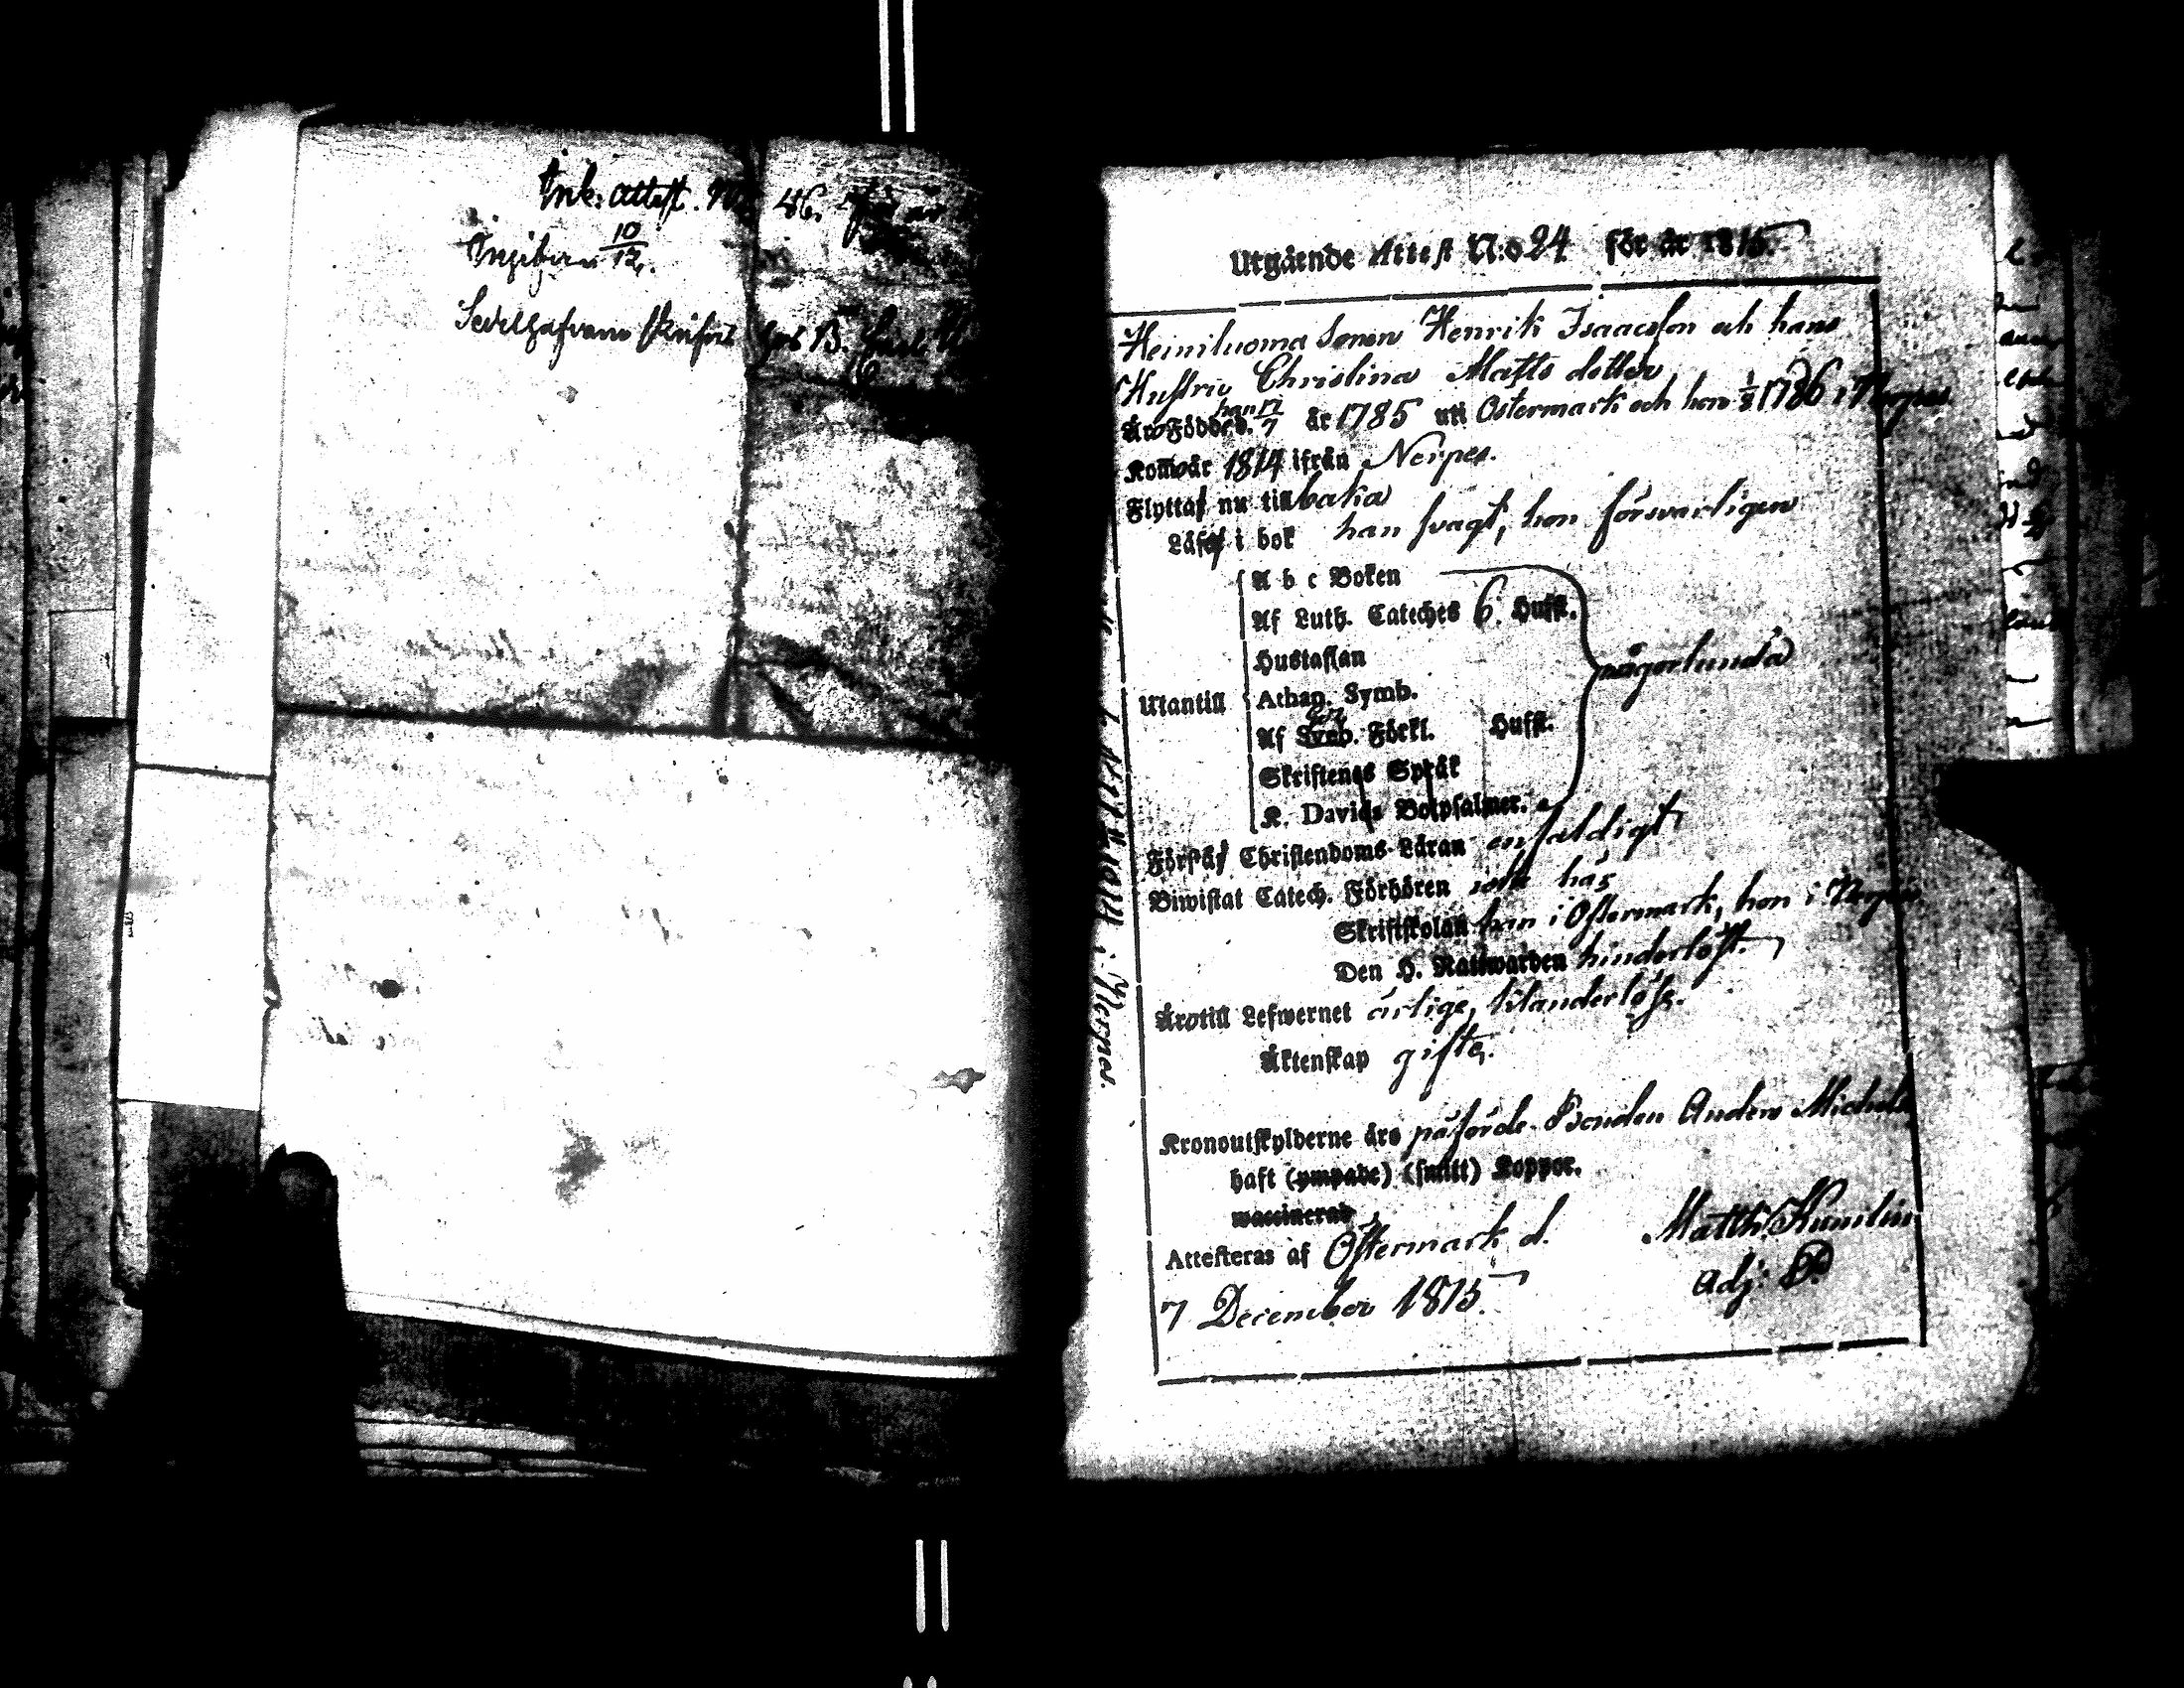 Ink: Attest. No. 46. för år
Ingifven 10/12.
Sedelhafvaren skrifves hos B.
Utgående Attest N:o 24 för år 1815.
Heiniluoma Sonen Henrik Isaacsson och hans
Hustru Christina Matts dotter
Äro Födde d. han 17/7 år 1785 uti Östermark och hon 1/8 1786 i Nerpes
Kom år 1814 ifrån Nerpes.
Flyttas nu till baka
Läser i bok han svagt, hon försvarligen
A b c Boken
Af Luth. Cateches 6. Hufst.
Hustaflan
någorlunda
Utantill
Athan. Symb.
Af Sveb. Förkl. Hufst.
Skriftenes Språk
K. Davids Botpsalmer.
Förstår Christendoms-Läran enfaldigt
Biwistat Catech. Förhören här
Skriftskolan han i Östermark, hon i Nerpes
Den H. Nattwarden hinderlöst.
Äro till Lefwernet ärlige, klanderlöse.
Äktenskap gifte.
Kronoutskylderne äro påförde Bonden Anders Michels
haft (ympade) (smitt) Koppor.
waccinerad
Attesteras af Östermark d.
Matth. Kumlin
7 December 1815.
Adj:
i Nerpes.